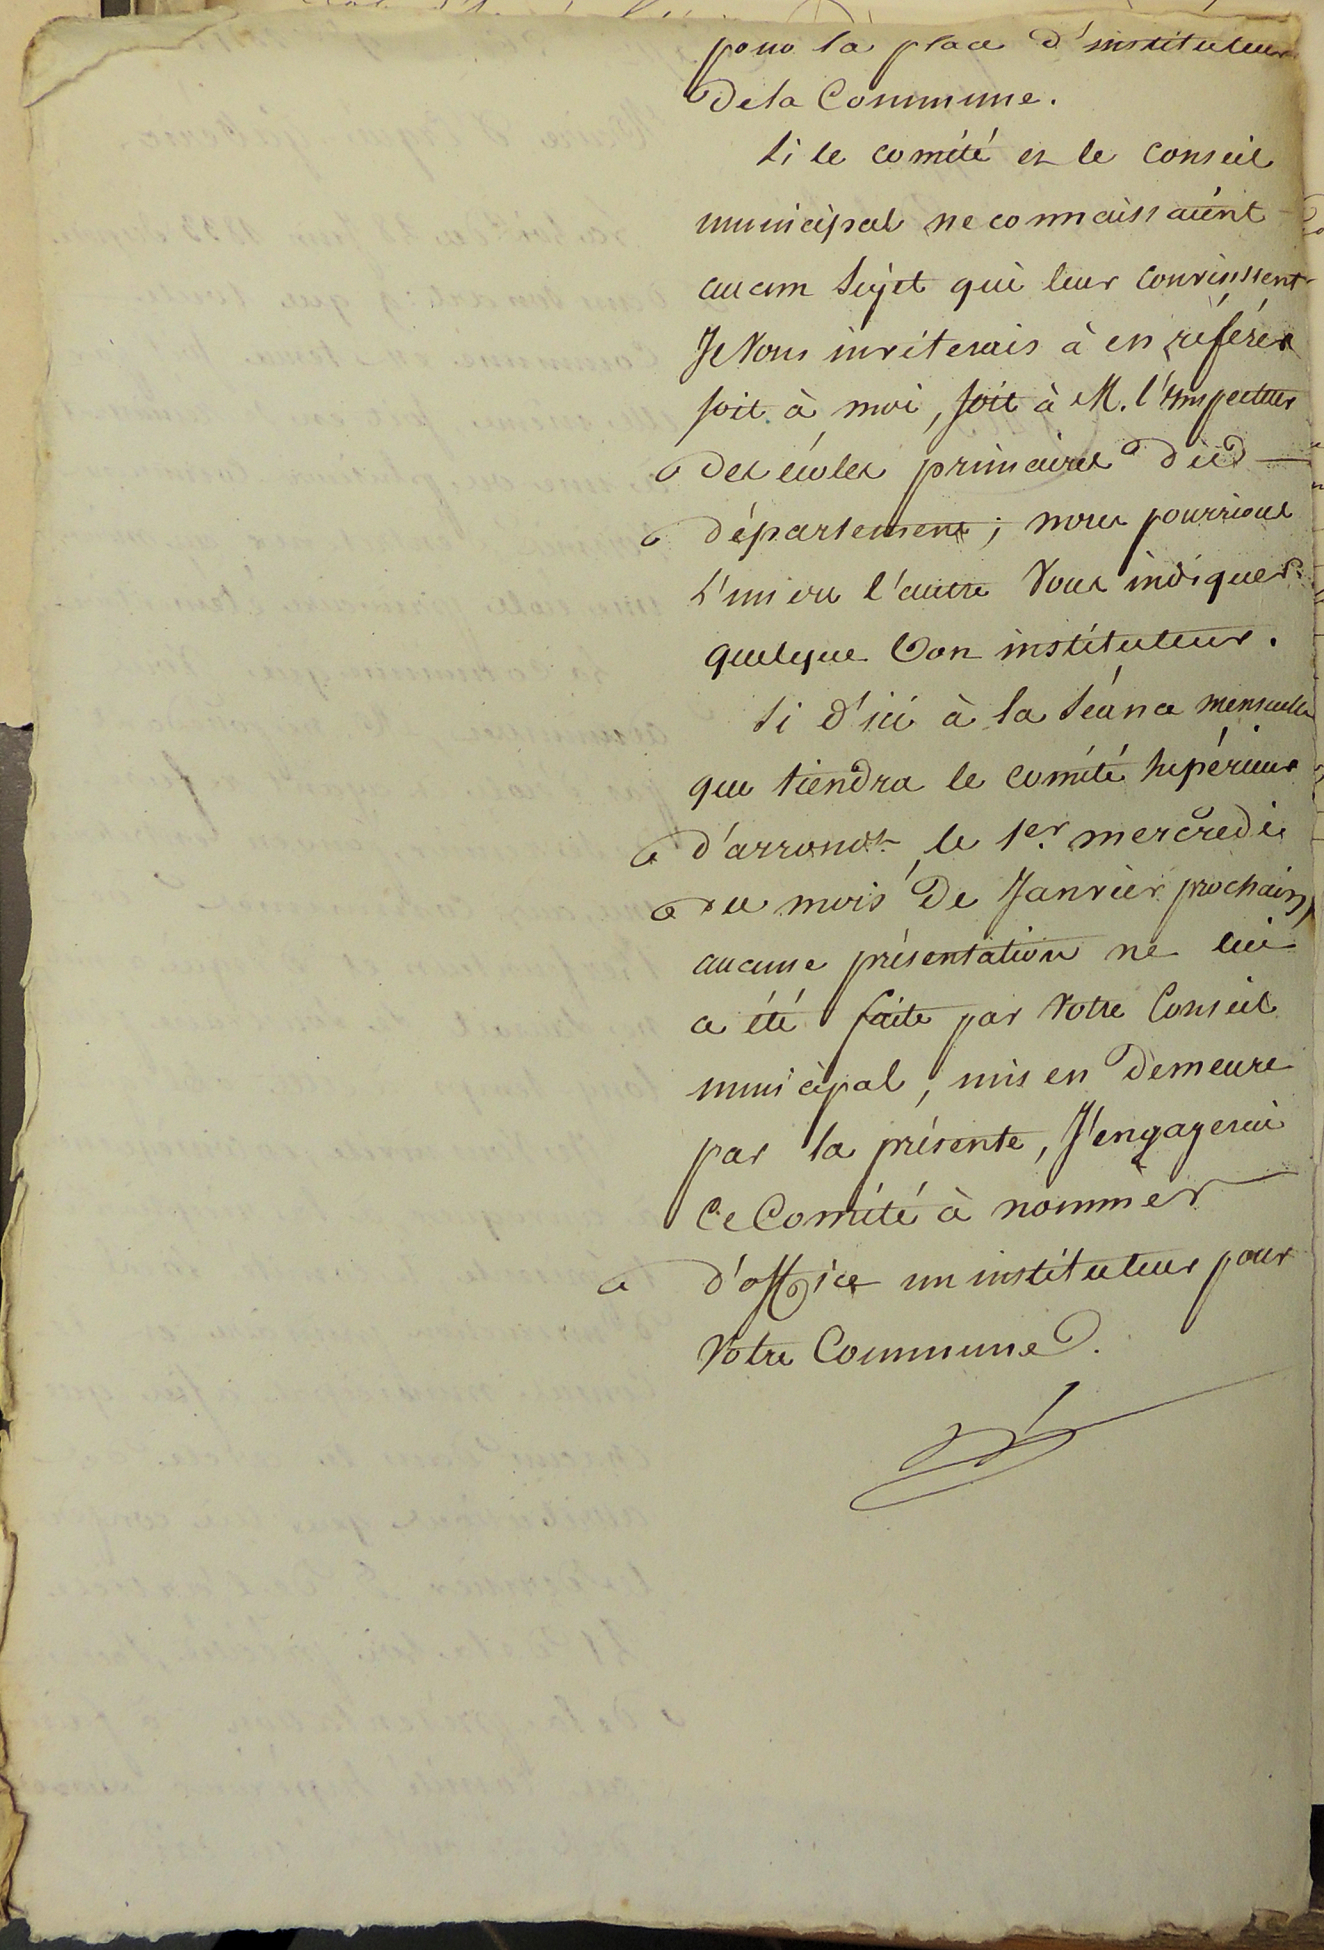 pour la place d'instituteur
de la Commune.
Si le comité et le conseil
municipal ne connaissaient
aucun sujet qui leur convinssent
Je Vous inviterais à en référer
soit à moi, soit à M. l'inspecteur
des écoles primaires du
département; nous pourrions
l'un ou l'autre Vous indiquer
quelque bon instituteur.
Si d'ici à la séance mensuelle
que tiendra le comité supérieur
d'arrondt. le 1er. mercredi
du mois de Janvier prochain,
aucune présentation ne lui
a été faite par Votre Conseil
municipal, mis en demeure
par la présente, J'engagerai
Ce Comité à nommer
d'office un instituteur pour
Votre Commune.